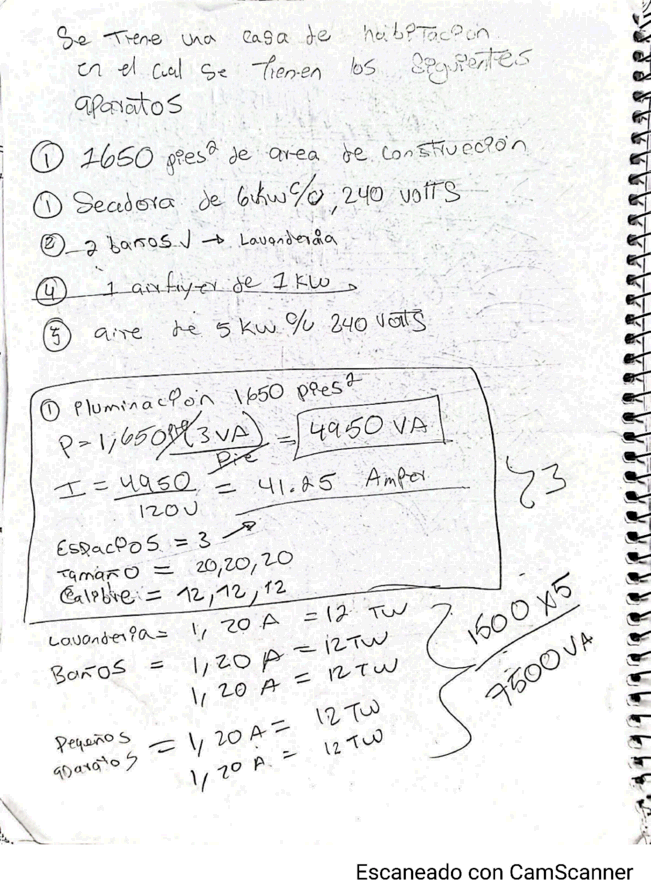 Se Tiene una casa de habitación
en el cual se Tienen los siguientes
aparatos
① 1650 pies² de area de construcción
① Secadora de 6kw c/u, 240 volTS
② 2 baños √ → Lavandería
④ 1 airfryer de 1 KW
⑤ aire de 5 kw c/u 240 volTS
① Iluminación 1650 pies²
P = 1,650 pie² (3 VA) / pie² = 4950 VA
I = 4950 / 120V = 41.25 Amper
} 3
Espacios = 3
Tamaño = 20,20,20
Calibre = 12,12,12
Lavandería = 1, 20 A = 12 TW
Baños = 1, 20 A = 12 TW
1, 20 A = 12 TW
1500 x 5
7500 VA
Pequeños aparatos = 1, 20 A = 12 TW
1, 20 A = 12 TW
Escaneado con CamScanner